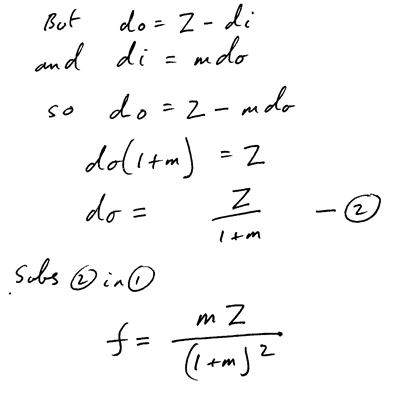 But do = Z - di
and di = mdo
so do = Z - mdo
do(1+m) = Z
do = Z / 1+m - ②
Subs ② in ①
f = mZ / (1+m)²